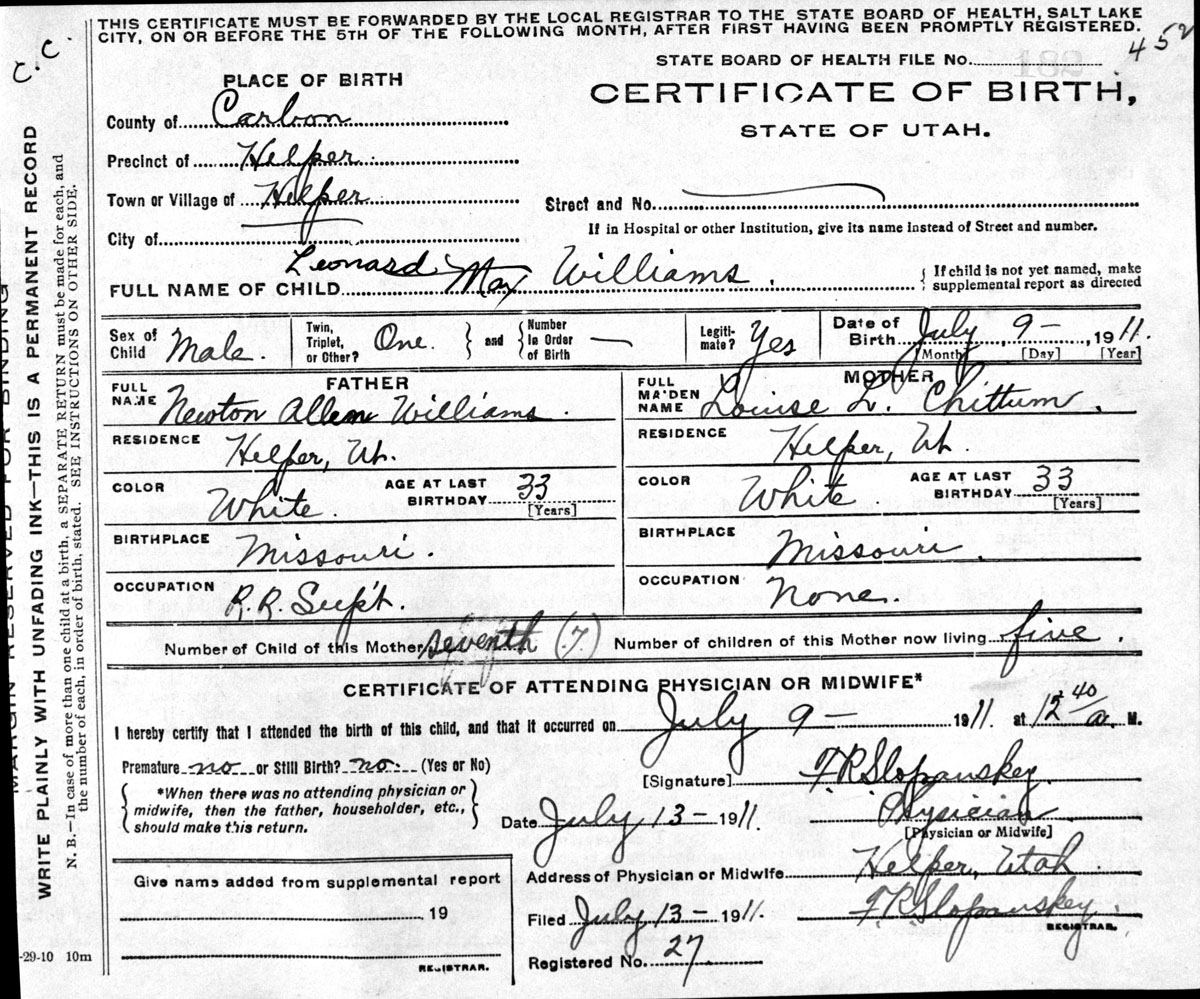 THIS CERTIFICATE MUST BE FORWARDED BY THE LOCAL REGISTRAR TO THE STATE BOARD OF HEALTH, SALT LAKE
CITY, ON OR BEFORE THE 5TH OF THE FOLLOWING MONTH, AFTER FIRST HAVING BEEN PROMPTLY REGISTERED.
C.C.
452
STATE BOARD OF HEALTH FILE No. 182
CERTIFICATE OF BIRTH,
STATE OF UTAH.
PLACE OF BIRTH
County of Carbon
Precinct of Helper
Town or Village of Helper
Street and No.
City of
If in Hospital or other Institution, give its name instead of Street and number.
FULL NAME OF CHILD Leonard May Williams.
If child is not yet named, make
supplemental report as directed
Sex of Child Male. Twin, Triplet, or Other? One. and Number in Order of Birth — Legiti-mate? Yes Date of Birth July 9 - 1911.
[Month] [Day] [Year]
FATHER MOTHER
FULL NAME Newton Allen Williams. FULL MAIDEN NAME Louise L. Chittum.
RESIDENCE Helper, Ut. RESIDENCE Helper, Ut.
COLOR White. AGE AT LAST BIRTHDAY 33 [Years] COLOR White AGE AT LAST BIRTHDAY 33 [Years]
BIRTHPLACE Missouri. BIRTHPLACE Missouri.
OCCUPATION R.R. Sup't. OCCUPATION None.
Number of Child of this Mother seventh (7) Number of children of this Mother now living five.
CERTIFICATE OF ATTENDING PHYSICIAN OR MIDWIFE*
I hereby certify that I attended the birth of this child, and that it occurred on July 9 - 1911. at 12 40 a. M.
Premature no or Still Birth? no. (Yes or No)
[Signature] F.R. Slopanskey.
*When there was no attending physician or
midwife, then the father, householder, etc.,
should make this return.
Date July 13 - 1911. Physician
[Physician or Midwife]
Address of Physician or Midwife Helper, Utah
Give name added from supplemental report
19
Filed July 13 - 1911. F.R. Slopanskey.
REGISTRAR.
Registered No. 27
REGISTRAR.
-29-10 10m
MARGIN RESERVED FOR BINDING
WRITE PLAINLY WITH UNFADING INK—THIS IS A PERMANENT RECORD
N. B.—In case of more than one child at a birth, a SEPARATE RETURN must be made for each, and
the number of each, in order of birth, stated. SEE INSTRUCTIONS ON OTHER SIDE.